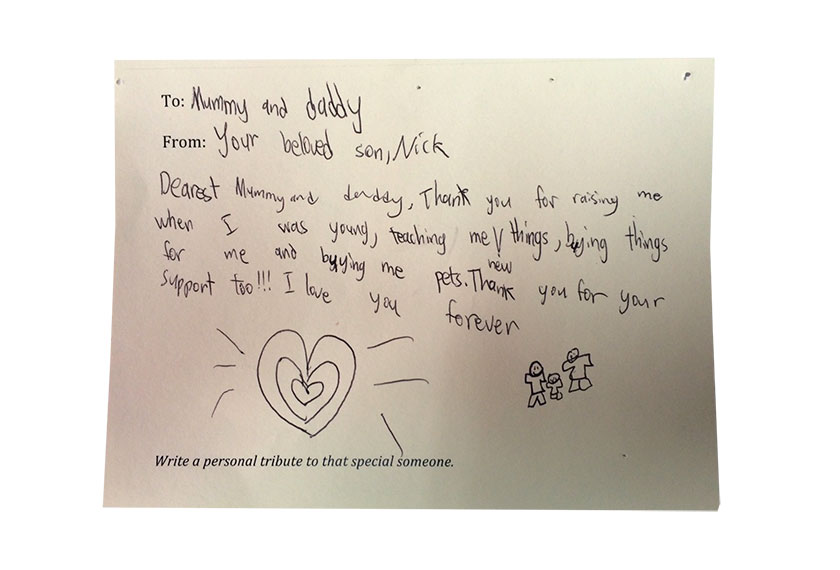 To: Mummy and daddy
From: Your beloved son, Nick
Dearest Mummy and daddy, Thank you for raising me
when I was young, teaching me new things, bying things
for me and buying me pets. Thank you for your
support too!!! I love you forever
Write a personal tribute to that special someone.